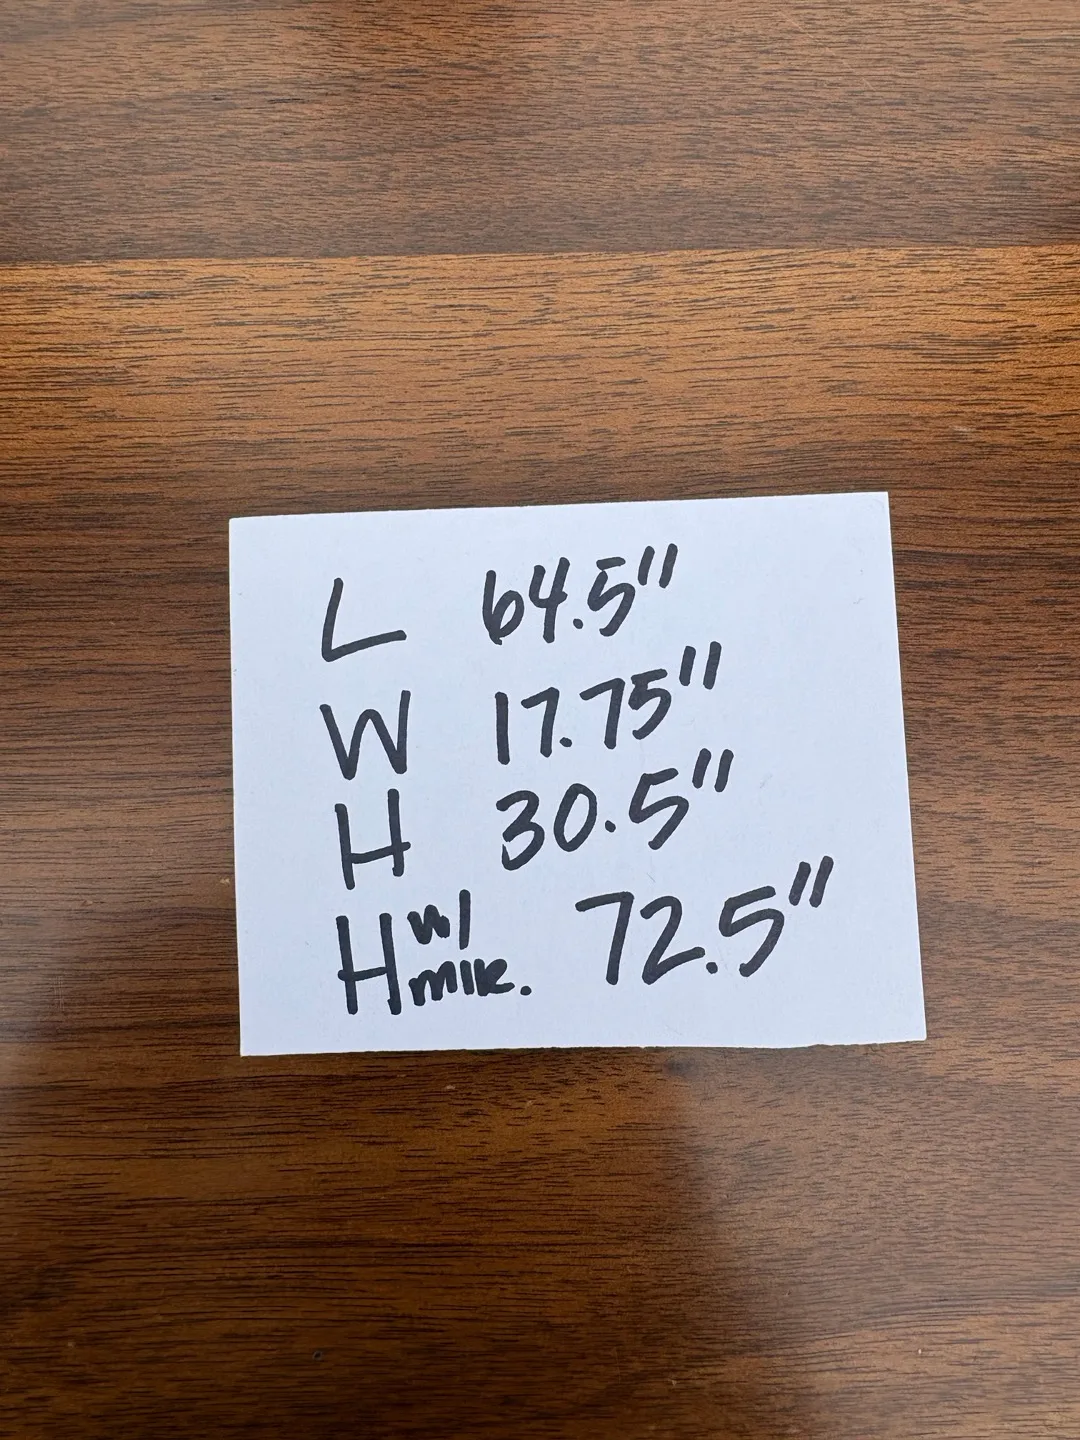 L 64.5"
W 17.75"
H 30.5"
H w/ mir. 72.5"